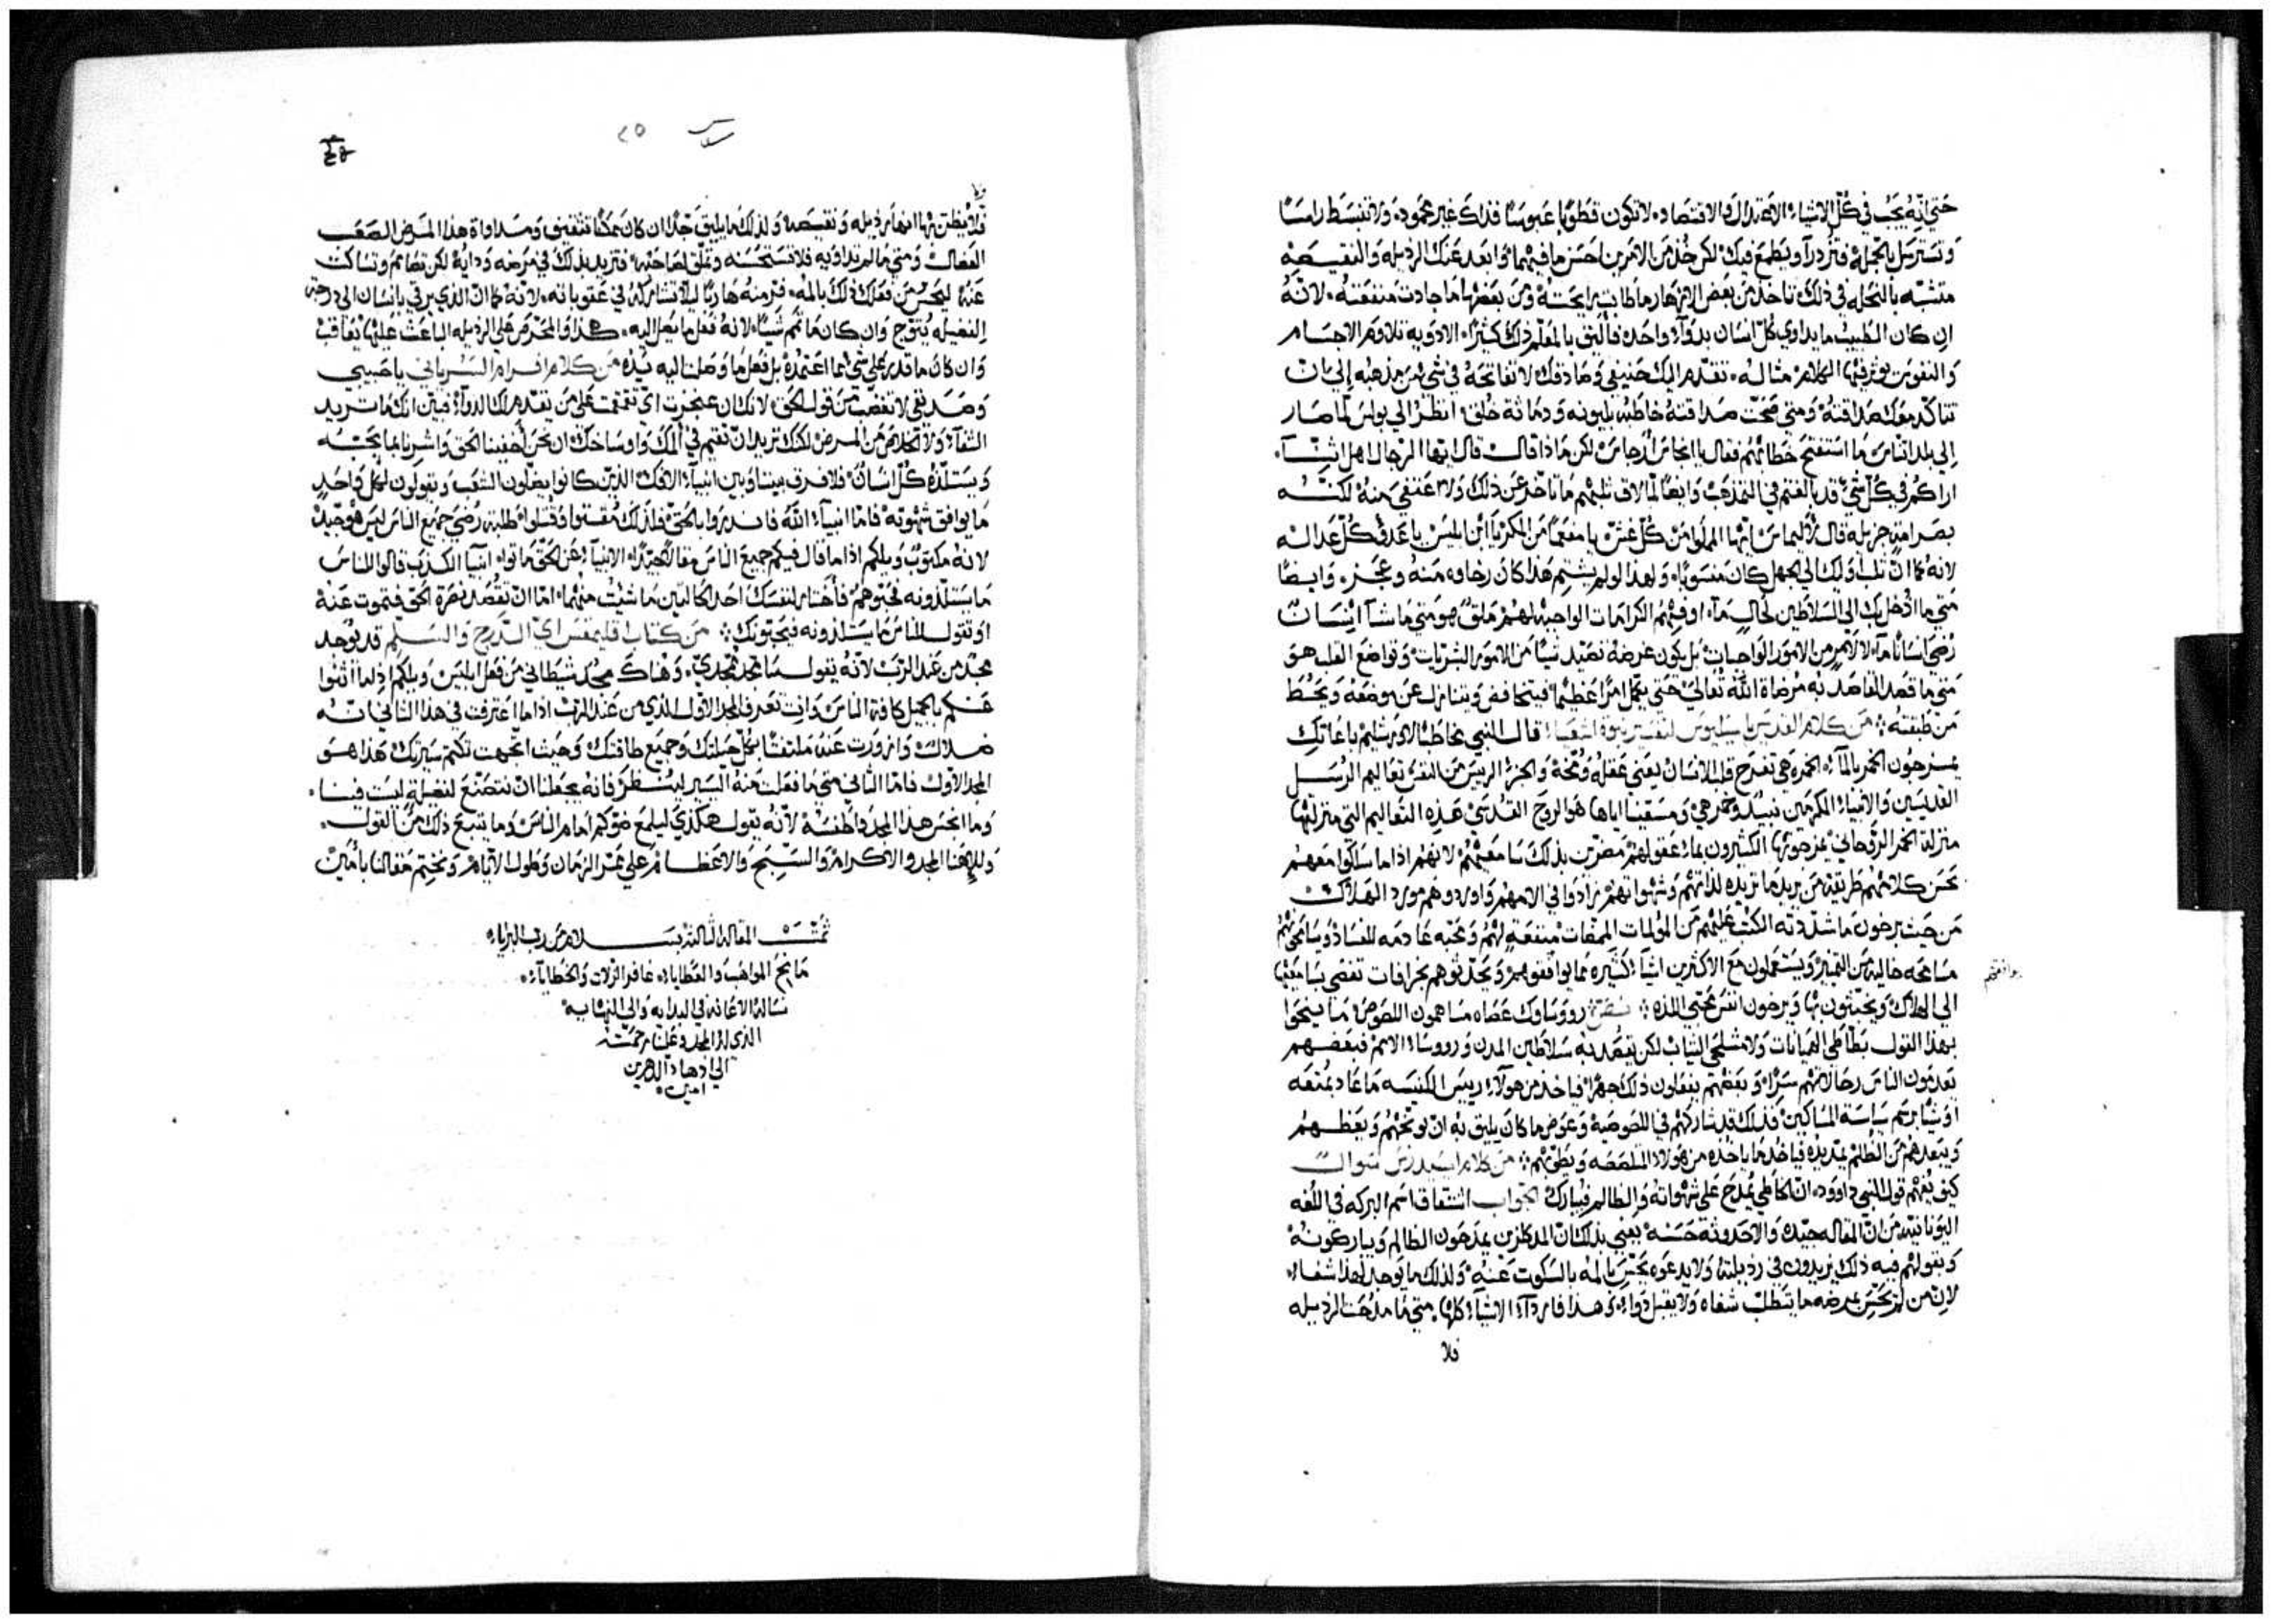 حتى انه يجب في كل الاشياء الاعتدال والاقتصاد لا تكون قطوبا عبوسا فذاك غير محمود ولا تنبسط رامسا
وتسترسل بالجمله فتزدرا ويطمع فيك لكن خذ من الامرين احسن ما فيهما وابعد عنك الرذيله والنقيصه
متشبه بالنحله في ذلك تاخذ من بعض الازهار ما طاب رايحته ومن بعضها ما جادت منفعته لانه
ان كان الطبيب ما يداوي كل انسان بدوآء واحد فاليق بالمعلم ذلك كثيرا الادويه تلاوم الاجسام
والنفوس يوثر فيها الكلام مثاله تقدم اليك حنيفي وصادقك لا تفاتحه في شي من مذهبه إلي بان
تتاكد معك صداقته ومتى صحت صداقته خاطبه بليونه ودماثة خلق انظر الي بولس لما صار
إلى بلد اثناس ما استفتح خطابهم فقال يا انجاس ارجاس لكن ماذا قال قال ايها الرجال اهل اثينا
اراكم في كل شي قد بالغتم في التمذهب وايضا لما لاق ثلبهم ما تاخر عن ذلك ولا عنفي منه لكنه
بصرامة جزيله قال لاليماس ايها المملوا من كل غش يا مفعما من المكر يا ابن ابليس يا عدو كل عداله
لانه كما ان ثلب اوليك الي الجهل كان منسوبا ولهذا لو لم يشتم هذا كان رخاوه منه وعجز وايضا
متى ما ادخل بك الى السلاطين لحال مآء اوفيهم الكرامات الواجبه لهم ملق هو متى ما شآ اينسان
رضى انسانا مآء لا لامر من الامور الواجبات بل يكون غرضه تصيد شيا من الامور الشريات وتواضع القلب هو
متى ما قصد القاصد به مرضاة الله تعالى حتى يتمل امرا عظيما فيتخافض ويتنازل عن موضعه ويحط
من طبقته من كلام القديس باسيليوس لتفسير نبوة اشعيا قال النبي مخاطبا لاورشليم باعاتك
يمزجون الخمر بالمآء الخمره هي تفرح قلب الانسان يعني عقله ومخه والجزء الرييس من النفس تعاليم الرسل
القديسين والانبياء المكرمين نبيذ وخمر هي ومسقينا اياها هو الروح القدس هذه التعاليم التي منزلتها
منزلة الخمر الروحاني يمزجونها الكثيرون بماء عقولهم مضرين بذلك سامعيهم لانهم اذا ما سلكوا معهم
بحسن كلامهم طريقة من يريد ما تريده لذاتهم وشهواتهم زادوا في الامهم واوردوهم مورد الهلاك
من حيث يرخون ما شددته الكتب عليهم من المولمات الممضات منفعة لهم ومحبه عادمه للفساد ويسامحونهم
مسامحه خاليه من التمييز ويستعملون مع الاكثرين اشيآء كثيره مما يوافقهم ويحدثوهم بخرافات تفضي بسامعيها
بوافقهم
الي الهلاك ويخبثون بها ويرخون انفس محبي اللذه نص رووساوك عصاه مساهمون اللصوص ما ينحوا
بهذا القول بطاطي الهيانات ولا مشلحي الثياب لكن يقصد به سلاطين المدن ورووساء الامم فبعضهم
يعدمون الناس رحالاتهم سرا وبعضهم يفعلون ذلك جهرا فياخذ من هولآء رييس الكنيسه ما عاد بمنفعه
او شيا برسم سياسة المساكين فذلك قد شاركهم في اللصوصية وعوض ما كان يليق به ان يوبخهم ويعظهم
ويبعدهم من الظلم يمد يده فياخذ ما ياخذه من هولاء المتلصصه ويطوبهم من كلام ايسيدرس سوال
كيف يفهم قول النبي داوود ان الخاطي يمدح على شهواته والظالم فيبارك الجواب اشتقاق اسم البركه في اللغه
اليونانيه من ان المقاله جيده والاحدوثة حسنه يعني بذلك ان المدكازين يمدحون الظالم ويباركونه
وبقولهم فيه ذلك يزيدون في رذيلته ولا يدعوه يحس بالمه بالسكوت عنه ولذلك ما يوجد لهذا شفاء
لان من لم يحس بمرضه ما يتطلب شفاه ولا يقبل دواء وهذا فارداء الاشيآء كلها متى ما مدحت الرذيله
فلا
سادس ٢٥
فلا يظن بها انها رذيله ونقيصه ولذلك ما يليق جدا ان كان ممكنا تثقيف ومداواة هذا المرض الصعب
العضال ومتى ما لم تداويه فلا تستحسنه وتملق لصاحبه فتزيد بذلك في مرضه ودايه لكن تصامم وتساكت
عنه ليحس من فعلك ذلك بالمه فر منه هاربا ليلا تشاركه في عقوباته لانه كما ان الذي يرقي بانسان الى درجة
الفضيله يتوج وان كان ما تمم شيئا لانه فعل ما يصل اليه هكذا والمحرض على الرذيله الباعث عليها يعاقب
وان كان ما قدر على شي مما اعتمده بل فعل ما وصلنا اليه يده من كلام افرام السرياني يا حبيبي
وصديقي لا تغضب من قول الحق لانك ان عجزت اي تقمقت على من يقدم لك الدوآء فبين انك ما تريد
الشفآء ولا تخلاص من المرض لكنك تريد ان تقيم في المك واوساخك ان نحن اخفينا الحق واشرنا بما يحبه
ويستلذه كل انسان فلا فرق بيننا وبين انبيآء الافك الذين كانوا يضلون الشعب ويقولون لكل واحد
ما يوافق شهوته فاما انبيآء الله فانذروا بالحق فلذلك مقتوا وقتلوا طلبة رضى جميع الناس ليس هو جيد
لانه مكتوب ويلكم اذا ما قال فيكم جميع الناس مقالا جيدا الانبيآء عن الحق ماتوا انبيآ الكذب قالوا للناس
ما يستلذونه فحبوهم فاختار لنفسك احد الحالتين ما شيت منهما اما ان تقصد نصرة الحق فتموت عنه
او تقول للناس ما يستلذونه فيحبونك من كتاب قليمقس اي الدرج والسلم قد يوجد
مجد من عند الرب لانه يقول سامجد ممجدي وهناك مجد شيطاني من فعل ابليس ويلكم اذا ما اثنوا
عنكم بالجميل كافة الناس وانت تعرف المجد الاول الذي من عند الرب اذا ما اعترفت في هذا الثاني انه
ضلاله وازورت عنه ملتفتا بكل حيلتك وجميع طاقتك وحيث اتجهت تكتم سيرتك هذا هو
المجد الاول فاما الثاني متى ما فعلت منه اليسير لينظر فانه يجعلنا ان نتصنع لفضيلة ليست فينا
وما انجس هذا المجد واطفسه لانه يقول هكذي ليلمع ضوكم امام الناس وما يتبع ذلك من القول
ولالهنا المجد والاكرام والتسبيح والاعظام على ممر الزمان وطول الايام ونختم مقالنا بامين
تمت المقالة الثالثة بسلام من رب البرايا
مانح المواهب والعطايا غافر الزلات والخطايآء
نساله الاعانه في البدايه والى النهايه
الذي له المجد وعلينا رحمته
الى ادهار الداهرين
امين